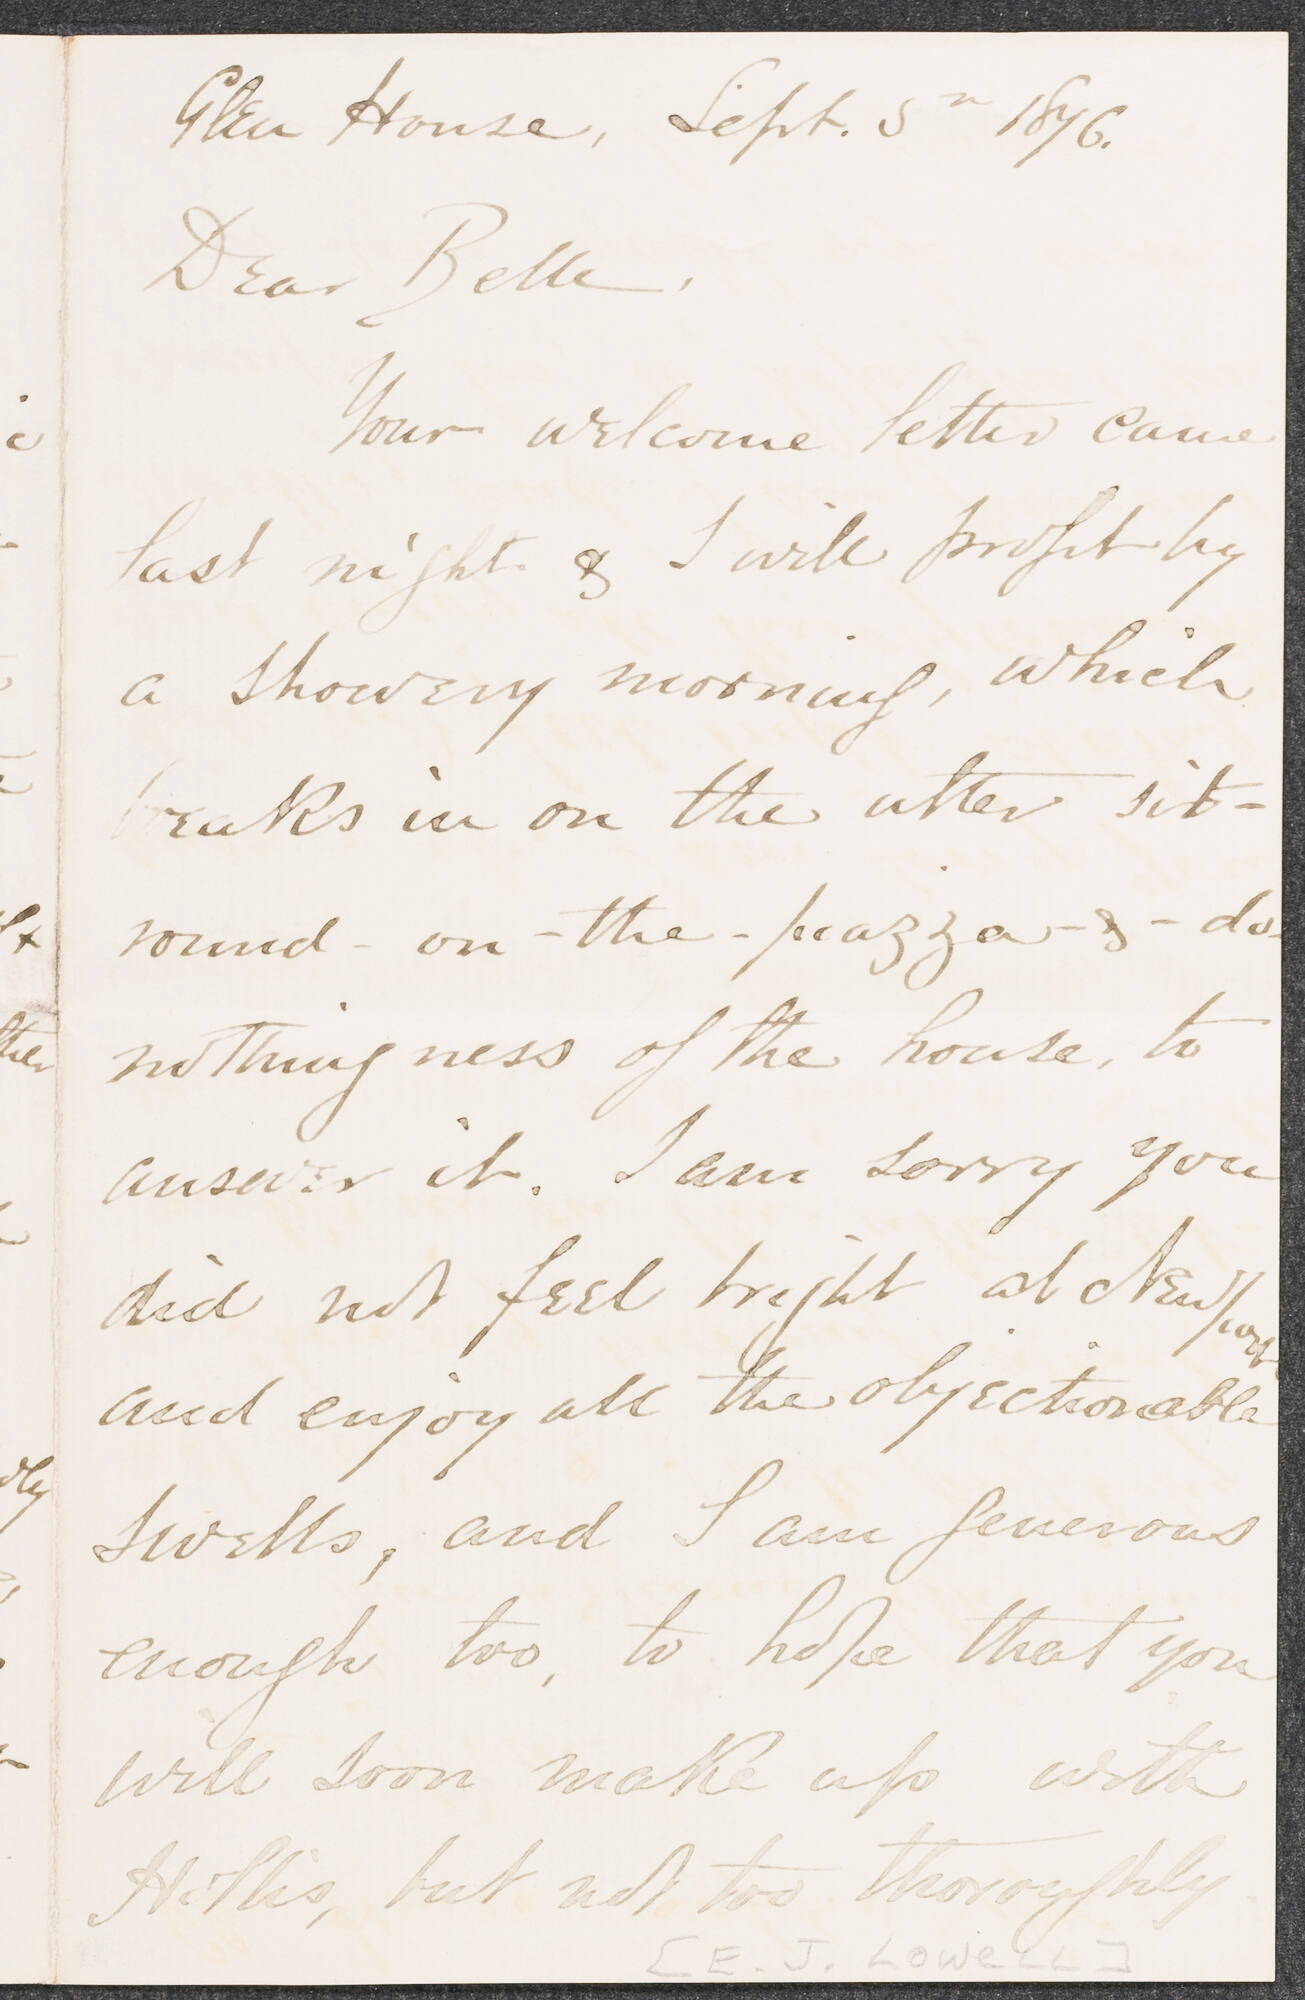 Glen House, Sept. 5th 1876.
Dear Belle,
Your welcome letter came
last night & I will profit by
a showery morning, which
breaks in on the utter sit-
round-on-the-piazza-&-do-
nothingness of the house, to
answer it. I am sorry you
did not feel bright at Newport
and enjoy all the objectionable
swells, and I am generous
enough too, to hope that you
will soon make up with
Hollis, but not too thoroughly
[E. J. LOWELL]